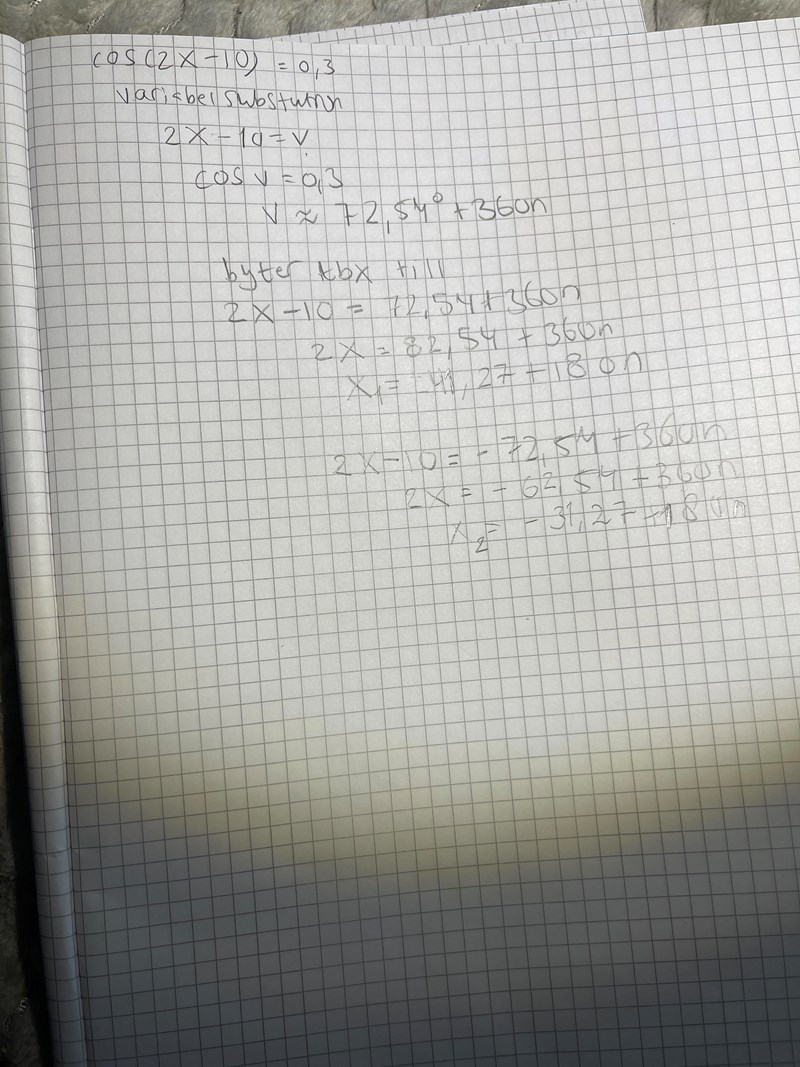 cos(2x-10) = 0,3
variabel substutmn
2x-10=v
cos v = 0,3
v ≈ 72,54° +360n
byter tbx till
2x-10 = 72,54+360n
2x = 82,54 + 360n
x₁= 41,27+180n
2x-10= -72,54+360n
2x= -62,54+360n
x₂= -31,27+180n